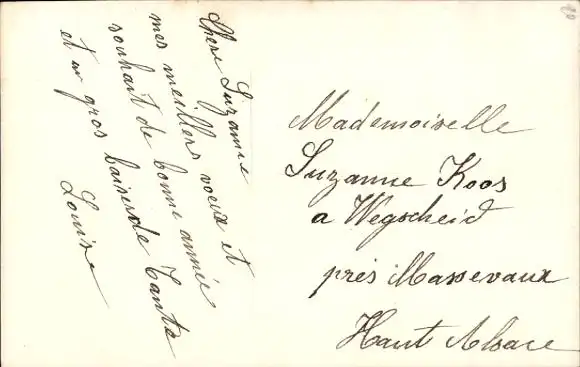 Chere Suzanne
mes meillers voeux et
souhait de bonne année
et un gros baiser de Tante
Louise
Mademoiselle
Suzanne Koos
a Wegscheid
près Massevaux
Haut Alsace